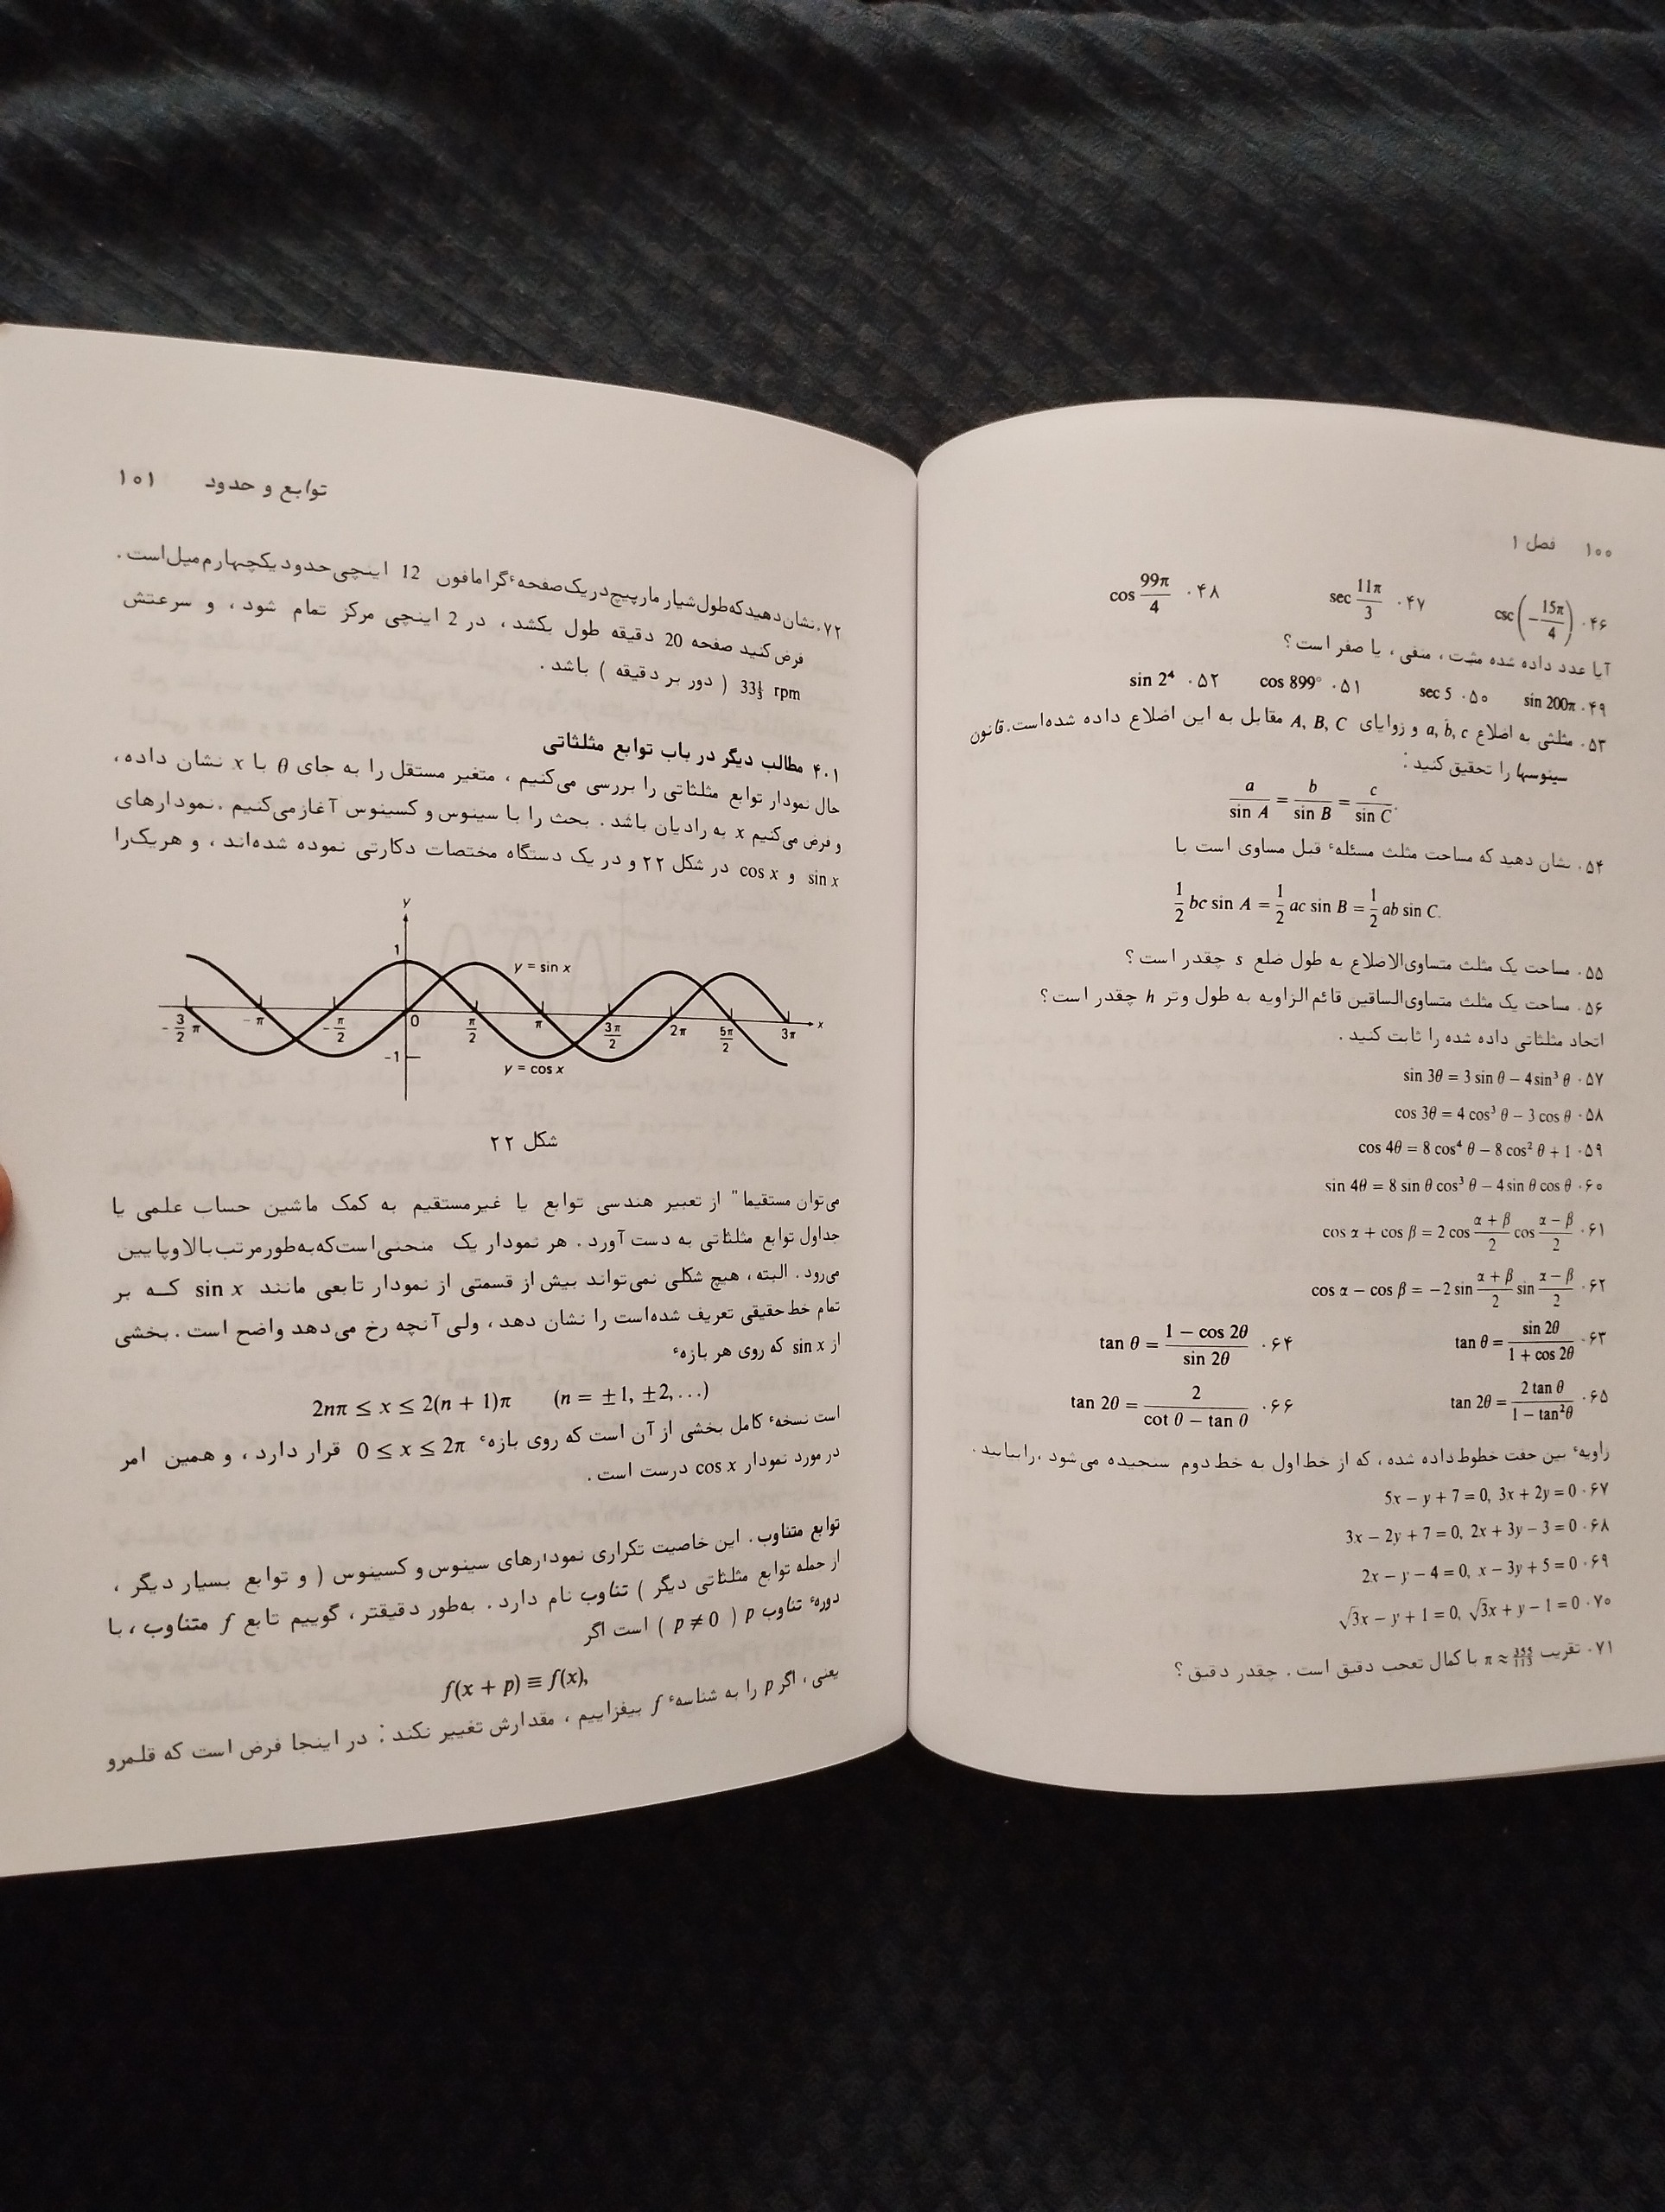 ۱۰۰ فصل ۱
۴۶. csc(−15π/4) ۴۷. sec 11π/3 ۴۸. cos 99π/4
آیا عدد داده شده مثبت، منفی، یا صفر است؟
۴۹. sin 200π ۵۰. sec 5 ۵۱. cos 899° ۵۲. sin 2⁴
۵۳. مثلثی به اضلاع a, b, c و زوایای A, B, C مقابل به این اضلاع داده شده‌است. قانون
سینوسها را تحقیق کنید:
a/sin A = b/sin B = c/sin C.
۵۴. نشان دهید که مساحت مثلث مسئلهٔ قبل مساوی است با
1/2 bc sin A = 1/2 ac sin B = 1/2 ab sin C.
۵۵. مساحت یک مثلث متساوی‌الاضلاع به طول ضلع s چقدر است؟
۵۶. مساحت یک مثلث متساوی‌الساقین قائم‌الزاویه به طول وتر h چقدر است؟
اتحاد مثلثاتی داده شده را ثابت کنید.
۵۷. sin 3θ = 3 sin θ − 4 sin³ θ
۵۸. cos 3θ = 4 cos³ θ − 3 cos θ
۵۹. cos 4θ = 8 cos⁴ θ − 8 cos² θ + 1
۶۰. sin 4θ = 8 sin θ cos³ θ − 4 sin θ cos θ
۶۱. cos α + cos β = 2 cos (α + β)/2 cos (α − β)/2
۶۲. cos α − cos β = −2 sin (α + β)/2 sin (α − β)/2
۶۳. tan θ = sin 2θ/(1 + cos 2θ) ۶۴. tan θ = (1 − cos 2θ)/sin 2θ
۶۵. tan 2θ = 2 tan θ/(1 − tan²θ) ۶۶. tan 2θ = 2/(cot θ − tan θ)
زاویهٔ بین جفت خطوط داده شده، که از خط اول به خط دوم سنجیده می‌شود، را بیابید.
۶۷. 5x − y + 7 = 0, 3x + 2y = 0
۶۸. 3x − 2y + 7 = 0, 2x + 3y − 3 = 0
۶۹. 2x − y − 4 = 0, x − 3y + 5 = 0
۷۰. √3x − y + 1 = 0, √3x + y − 1 = 0
۷۱. تقریب π ≈ 355/113 با کمال تعجب دقیق است. چقدر دقیق؟
توابع و حدود ۱۰۱
۷۲. نشان دهید که طول شیار مارپیچ در یک صفحهٔ گرامافون 12 اینچی حدود یکچهارم میل است.
فرض کنید صفحه 20 دقیقه طول بکشد، در 2 اینچی مرکز تمام شود، و سرعتش
33⅓ rpm (دور بر دقیقه) باشد.
۴.۱ مطالب دیگر در باب توابع مثلثاتی
حال نمودار توابع مثلثاتی را بررسی می‌کنیم، متغیر مستقل را به جای θ با x نشان داده،
و فرض می‌کنیم x به رادیان باشد. بحث را با سینوس و کسینوس آغاز می‌کنیم. نمودارهای
sin x و cos x در شکل ۲۲ و در یک دستگاه مختصات دکارتی نموده شده‌اند، و هریک را
y
1
y = sin x
−3/2 π −π −π/2 0 π/2 π 3π/2 2π 5π/2 3π x
−1
y = cos x
شکل ۲۲
می‌توان مستقیما" از تعبیر هندسی توابع یا غیرمستقیم به کمک ماشین حساب علمی یا
جداول توابع مثلثاتی به دست آورد. هر نمودار یک منحنی است که به‌طور مرتب بالا و پایین
می‌رود. البته، هیچ شکلی نمی‌تواند بیش از قسمتی از نمودار تابعی مانند sin x کــه بر
تمام خط حقیقی تعریف شده‌است را نشان دهد، ولی آنچه رخ می‌دهد واضح است. بخشی
از sin x که روی هر بازهٔ
2nπ ≤ x ≤ 2(n + 1)π (n = ±1, ±2,...)
است نسخهٔ کامل بخشی از آن است که روی بازهٔ 0 ≤ x ≤ 2π قرار دارد، و همین امر
در مورد نمودار cos x درست است.
توابع متناوب. این خاصیت تکراری نمودارهای سینوس و کسینوس (و توابع بسیار دیگر،
از جمله توابع مثلثاتی دیگر) تناوب نام دارد. به‌طور دقیقتر، گوییم تابع f متناوب، با
دورهٔ تناوب p (p ≠ 0) است اگر
f(x + p) ≡ f(x),
یعنی، اگر p را به شناسهٔ f بیفزاییم، مقدارش تغییر نکند؛ در اینجا فرض است که قلمرو